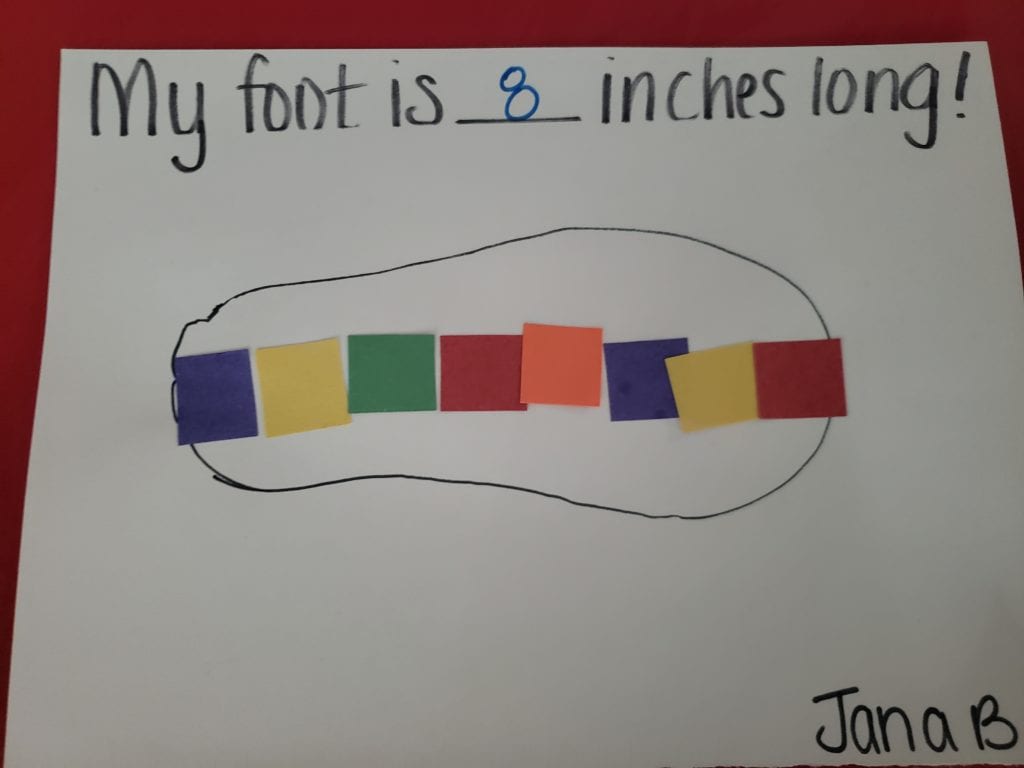 My foot is 8 inches long!
Jana B